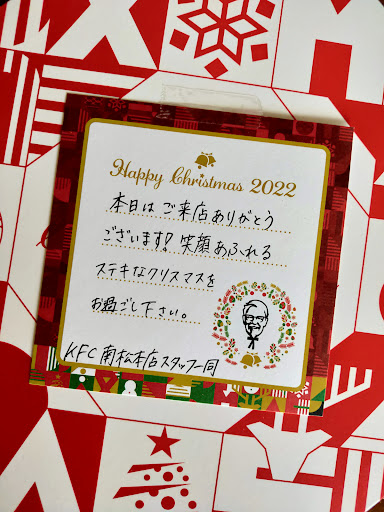 Happy Christmas 2022
本日は ご来店ありがとう
ございます! 笑顔あふれる
ステキなクリスマスを
お過ごし下さい。
KFC 南松本店スタッフ一同